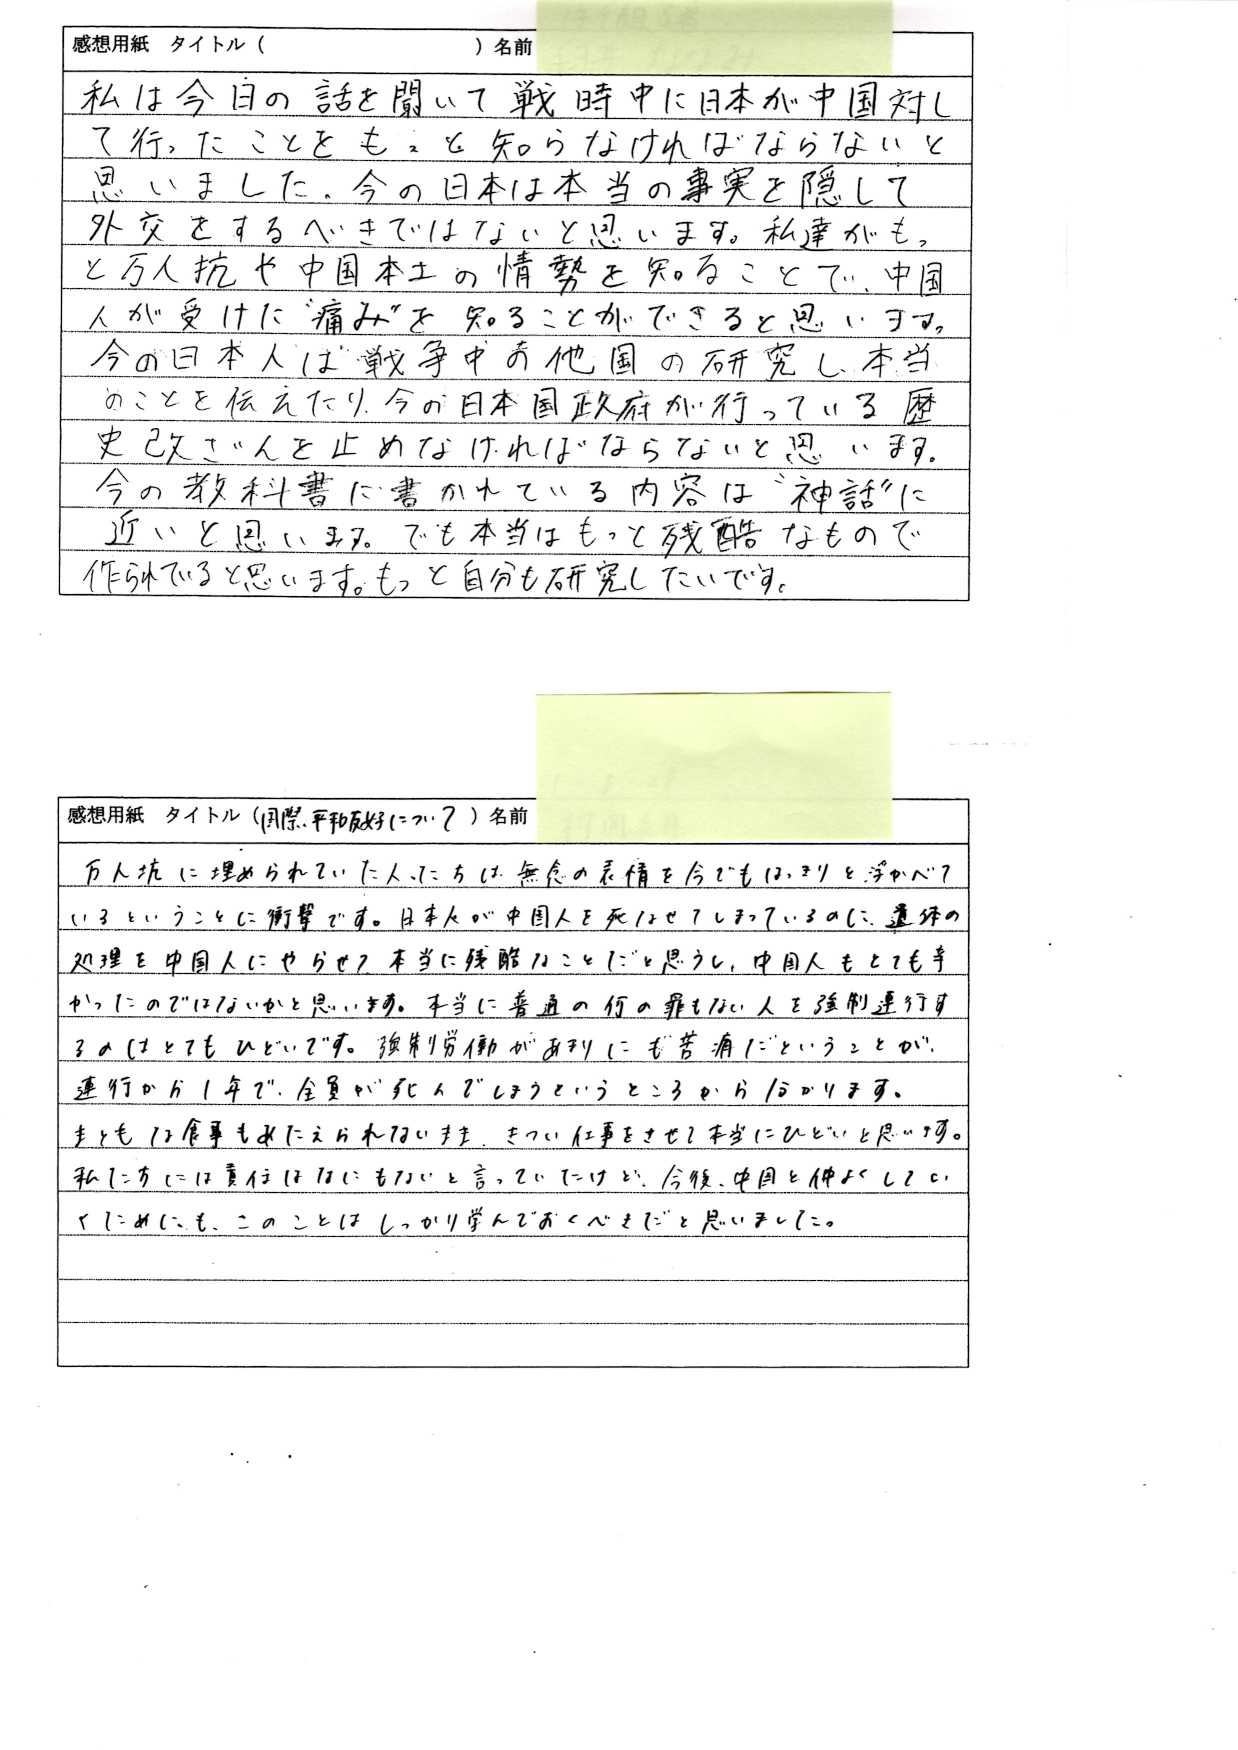 感想用紙 タイトル（ ）名前
私は今日の話を聞いて戦時中に日本が中国対し
て行ったことをもっと知らなければならないと
思いました。今の日本は本当の事実を隠して
外交をするべきではないと思います。私達がもっ
と万人抗や中国本土の情勢を知ることで、中国
人が受けた"痛み"を知ることができると思います。
今の日本人は戦争中の他国の研究し、本当
のことを伝えたり、今の日本国政府が行っている歴
史改ざんを止めなければならないと思います。
今の教科書に書かれている内容は"神話"に
近いと思います。でも本当はもっと残酷なもので
作られていると思います。もっと自分も研究したいです。
感想用紙 タイトル（国際、平和友好について）名前
万人坑に埋められていた人たちは、無念の表情を今でもはっきりと浮かべて
いるということに衝撃です。日本人が中国人を死なせてしまっているのに、遺体の
処理を中国人にやらせて本当に残酷なことだと思うし、中国人もとても辛
かったのではないかと思います。本当に普通の何の罪もない人を強制連行す
るのはとてもひどいです。強制労働があまりにも苦痛だということが、
連行から1年で、全員が死んでしまうというところから分かります。
まともな食事もあたえられないまま、きつい仕事をさせて本当にひどいと思います。
私たちには責任はなにもないと言っていたけど、今後、中国と仲よくしてい
くためにも、このことはしっかり学んでおくべきだと思いました。